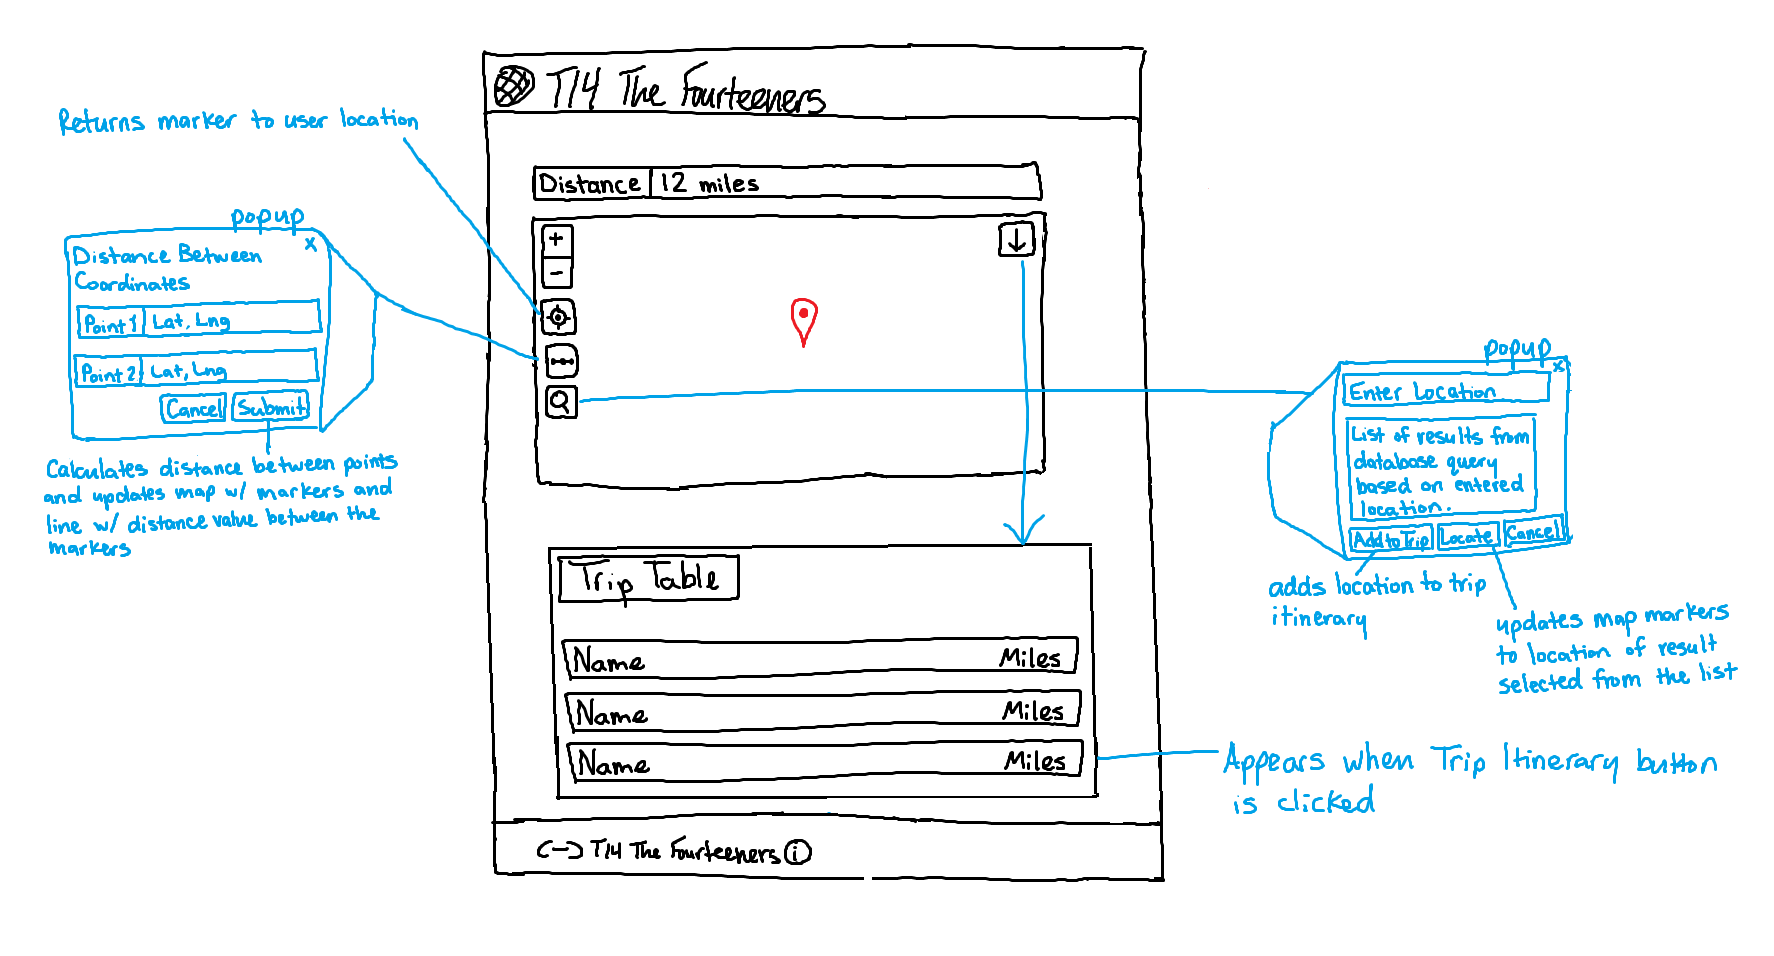 T14 The Fourteeners
Returns marker to user location
Distance 12 miles
popup
x
Distance Between
Coordinates
Point 1 Lat, Lng
Point 2 Lat, Lng
Cancel Submit
Calculates distance between points
and updates map w/ markers and
line w/ distance value between the
markers
+
-
popup
x
Enter Location
List of results from
database query
based on entered
location.
Add to Trip Locate Cancel
adds location to trip
itinerary
updates map markers
to location of result
selected from the list
Trip Table
Name Miles
Name Miles
Name Miles
Appears when Trip Itinerary button
is clicked
T14 The Fourteeners i